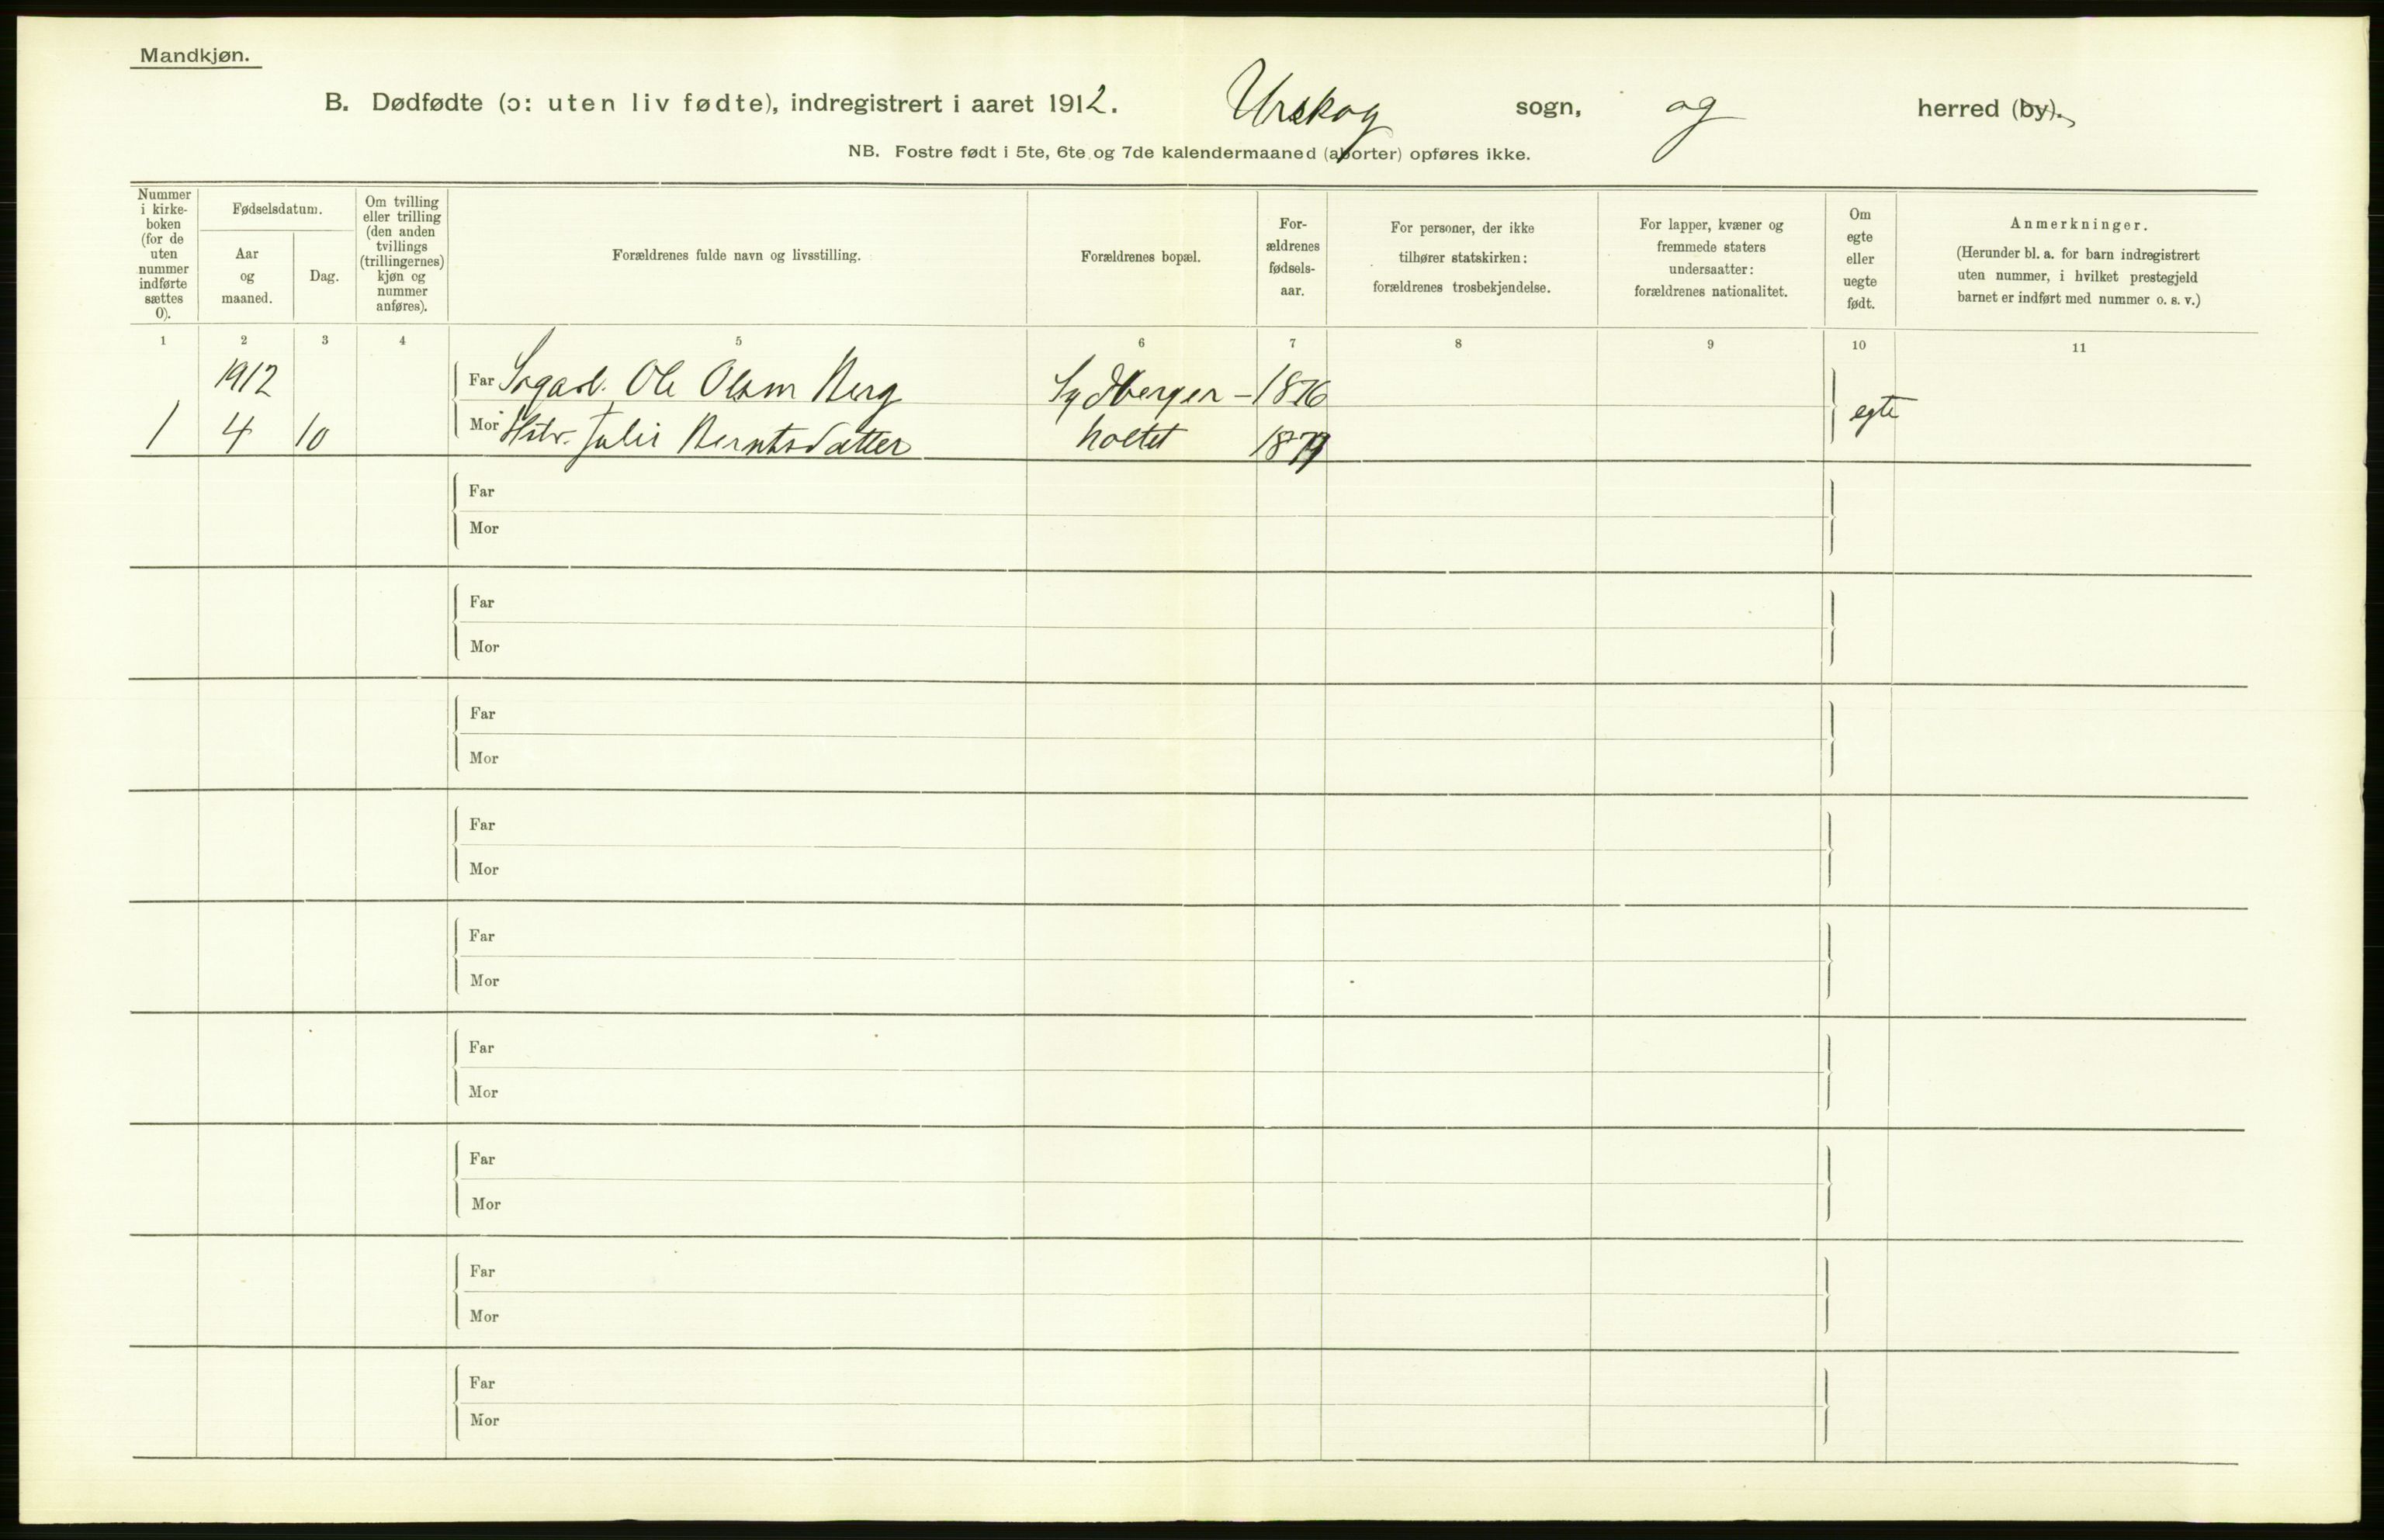 Mandkjøn.
B. Dødfødte (ɔ: uten liv fødte), indregistrert i aaret 1912. Urskog sogn, og herred (by).
NB. Fostre født i 5te, 6te og 7de kalendermaaned (aborter) opføres ikke.
Nummer i kirke-boken (for de uten nummer indførte sættes 0).
Fødselsdatum.
Aar og maaned.
Dag.
Om tvilling eller trilling (den anden tvillings (trillingernes) kjøn og nummer anføres).
Forældrenes fulde navn og livsstilling.
Forældrenes bopæl.
For-ældrenes fødsels-aar.
For personer, der ikke tilhører statskirken: forældrenes trosbekjendelse.
For lapper, kvæner og fremmede staters undersaatter: forældrenes nationalitet.
Om egte eller uegte født.
Anmerkninger.
(Herunder bl. a. for barn indregistrert uten nummer, i hvilket prestegjeld barnet er indført med nummer o. s. v.)
1 2 3 4 5 6 7 8 9 10 11
1912 Far Sagarb. Ole Olsen Berg Sydberger- 1876
1 4 10 Mor Hstr. Julie Berntsdatter holtet egte
Far
Mor
Far
Mor
Far
Mor
Far
Mor
Far
Mor
Far
Mor
Far
Mor
Far
Mor
Far
Mor